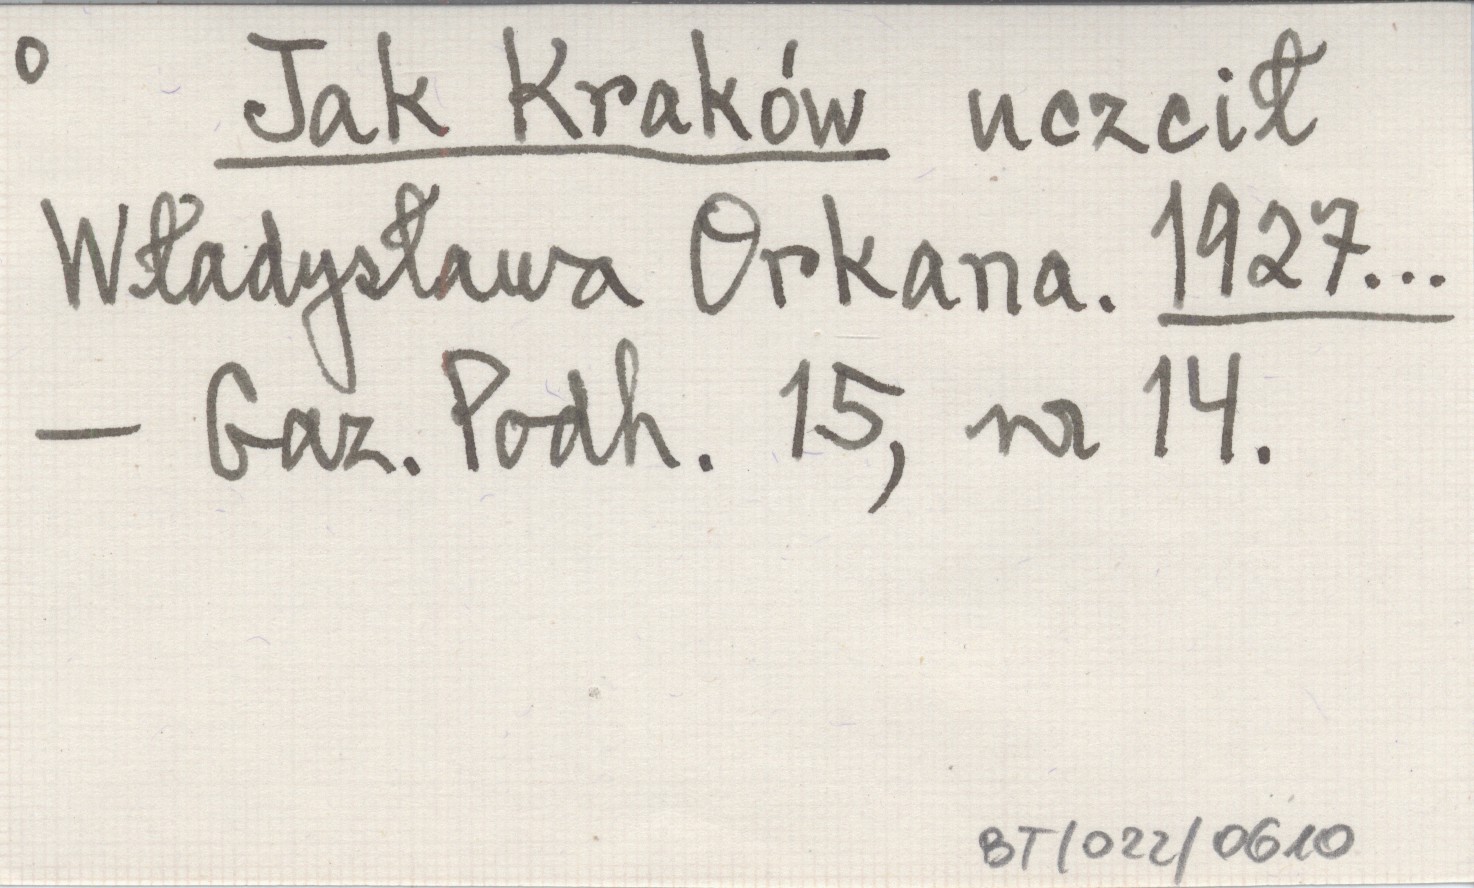 o Jak Kraków uczcił
Władysława Orkana. 1927...
— Gaz. Podh. 15, nr 14.
BT/022/0610